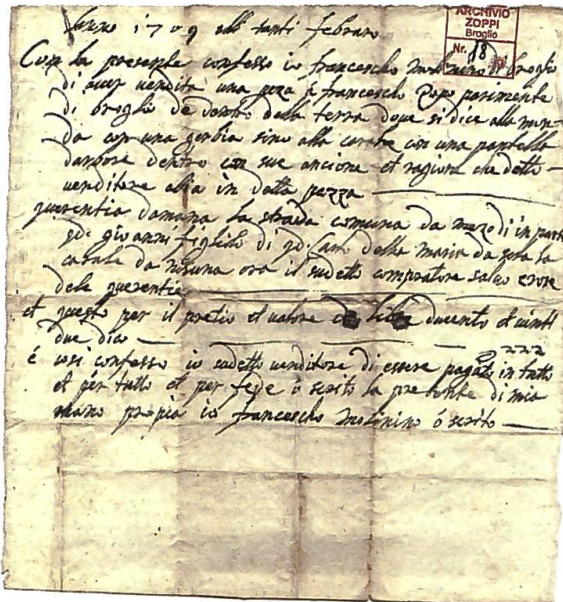 Anno 1709 alli tanti febraro
ARCHIVIO
ZOPPI
Broglio
Nr. 18
Con la presente confesso io francescho molinino di broglio
di aver vendita una peza à francescho Pozo parimente
di broglio de dentro della terra doue si dice alla
da con una gerbia sino alla con una pantella
darbore dentro con sue ancione et ragione che detto
venditore abia in detta pezza
querentia damana la strada comuna da mezedi in parte
giovanni figliolo di della maria da sera la
da nisuna ora il sudetto compratore salvo erore
dele querentie
et questo per il pretio et valore de libre ducento et vinti
due dico 222
é cosi confesso io sudetto venditore di essere pagato in tutto
et per tutto et per fede ò scrito la presente di mia
mano propia io francescho molinino ó scrito